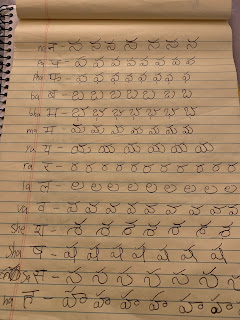 na न - న న న న న న న
pa प - ప ప ప ప ప ప ప ప
pha फ - ఫ ఫ ఫ ఫ ఫ ఫ ఫ
ba ब - బ బ బ బ బ బ బ
bha भ - భ భ భ భ భ భ భ
ma म - మ మ మ మ మ మ మ
ya य - య య య య య య య
ra र - ర ర ర ర ర ర ర ర ర
la ल - ల ల ల ల ల ల ల ల
va व - వ వ వ వ వ వ వ వ
She श - శ శ శ శ శ శ శ
sha ष - ష ష ష ష ష ష ష
स - స స స స స స స
ha ह - హ హ హ హ హ హ హ